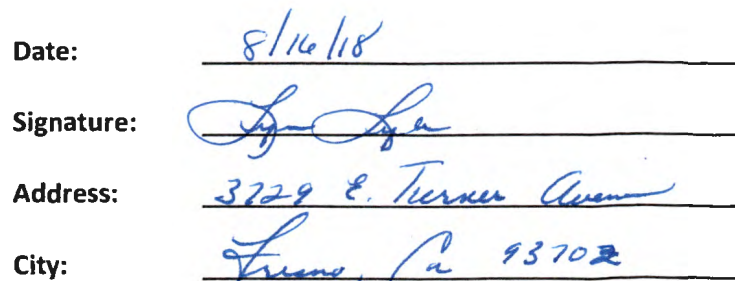 Date: 8/16/18
Signature:
Address: 3729 E. Turner Avenue
City: Fresno, Ca 93702